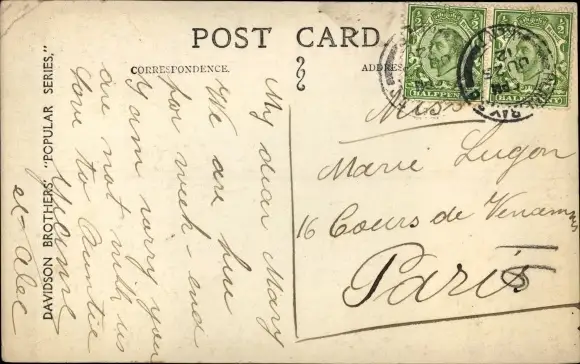 POST CARD.
CORRESPONDENCE.
ADDRESS
DAVIDSON BROTHERS' "POPULAR SERIES,"
My dear Mary
We are here
for week-end
I am sorry you
are not with us
love to Auntie
Yvonne
et Alec
Miss
Marie Lugon
16 Cours de
Paris
HALFPENNY
HALFPENNY